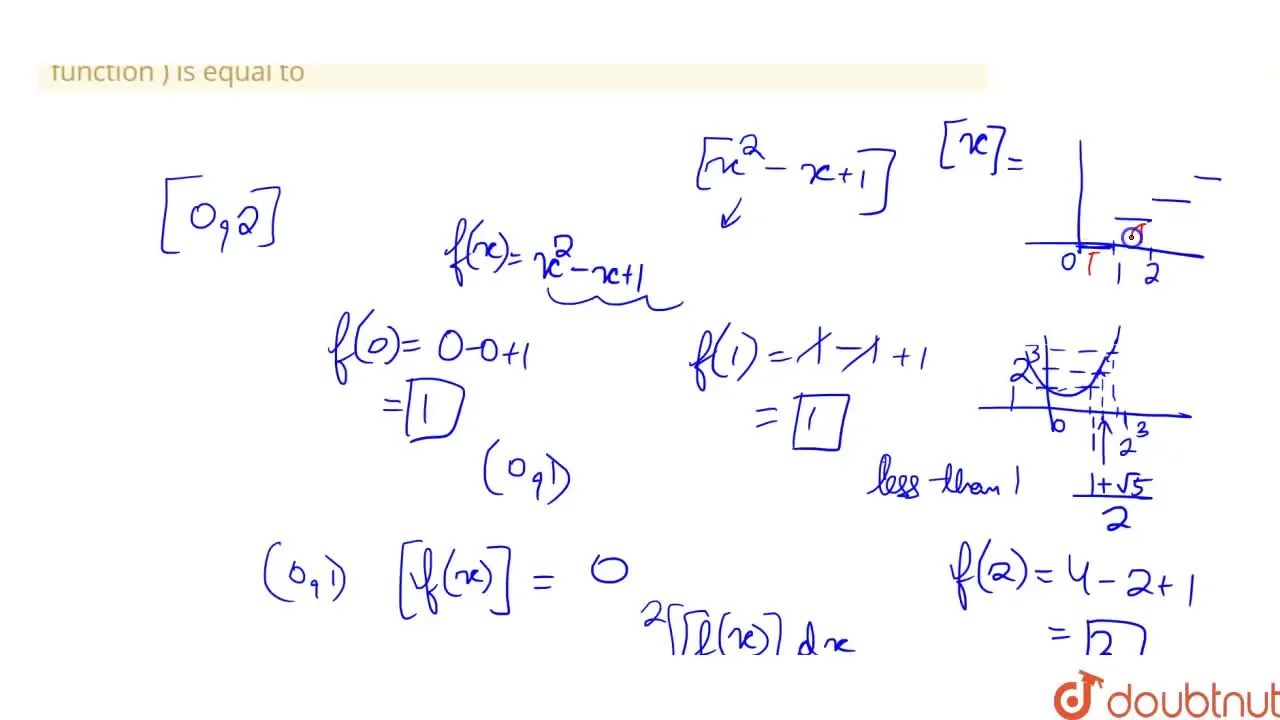 function ) is equal to
[x² - x+1]
[x] =
[0,2]
f(x)= x² - x+1
0 1 2
f(0)= 0-0+1
= 1
f(1) = 1 - 1 + 1
= 1
3
2
1 0 1 2 3
(0,1)
less than 1
1+√5
2
(0,1) [f(x)] = 0
f(2) = 4 - 2 + 1
=
2
[f(x)] dx
doubtnut